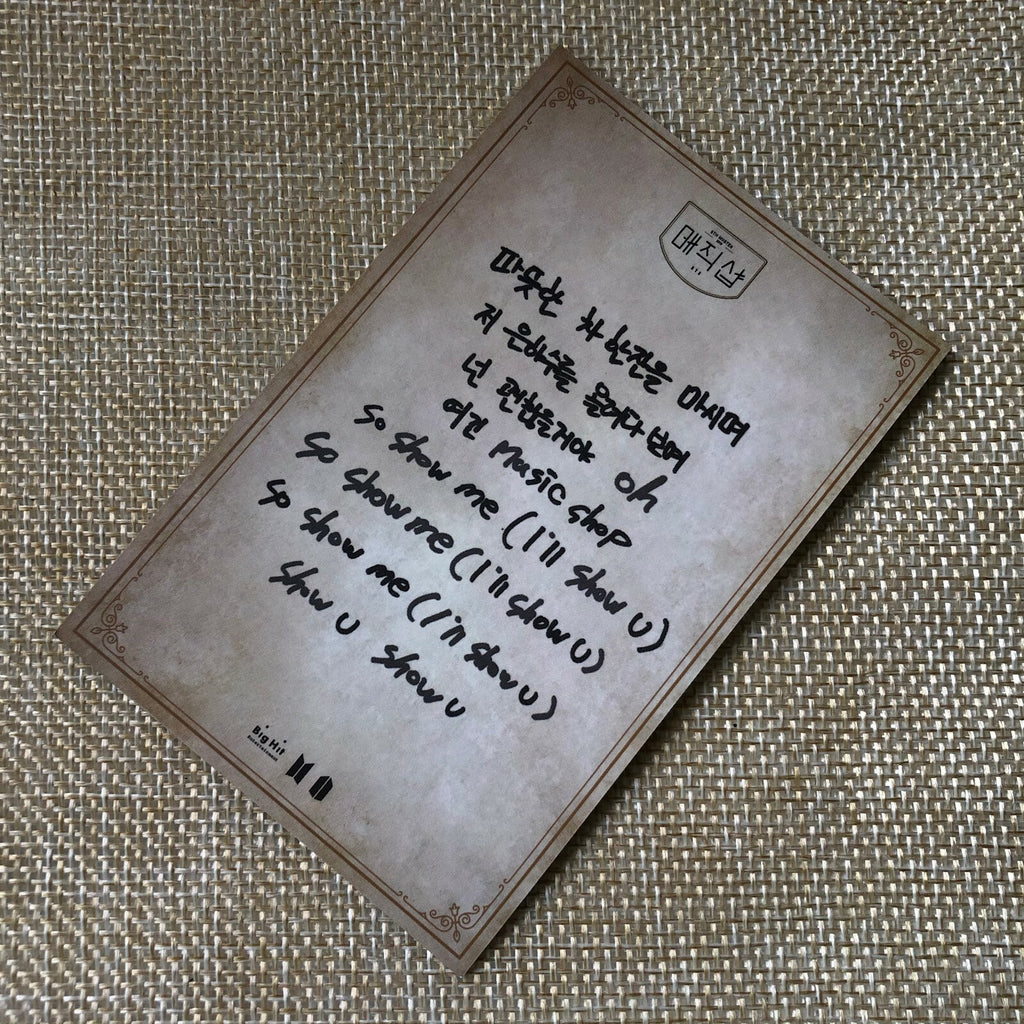 매직샵
BTS
따뜻한 차 한잔을 마시며
저 은하수를 올려다 보며
넌 괜찮을거야 oh
여긴 Magic shop
so show me (I'll show U)
so show me (I'll show U)
so show me (I'll show U)
show U show U
Big Hit
ENTERTAINMENT